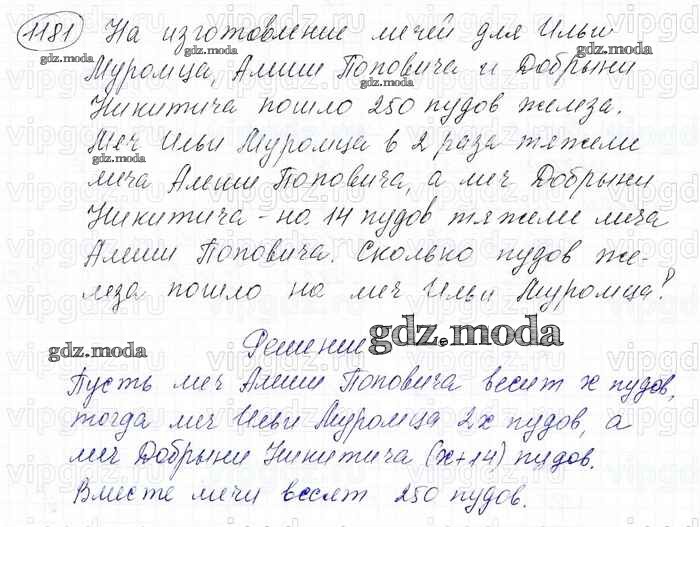 1181 На изготовление мечей для Ильи
Муромца, Алеши Поповича и Добрыни
Никитича пошло 250 пудов железа.
Меч Ильи Муромца в 2 раза тяжелей
меча Алеши Поповича, а меч Добрыни
Никитича - на 14 пудов тяжелей меча
Алеши Поповича. Сколько пудов же-
леза пошло на меч Ильи Муромца?
Решение
Пусть меч Алеши Поповича весит x пудов,
тогда меч Ильи Муромца 2x пудов, а
меч Добрыни Никитича (x+14) пудов.
Вместе мечи весят 250 пудов.
gdz.moda
gdz.moda
gdz.moda
gdz.moda
gdz.moda